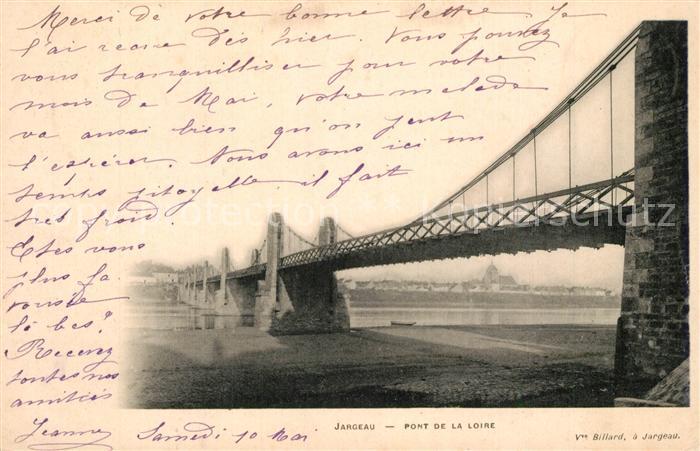 Merci de votre bonne lettre. Je
l'ai recue dès hier. Vous pouvez
vous tranquilliser pour votre
mois de Mai, votre malade
va aussi bien qu'on peut
l'espérer. Nous avons ici un
temps pitoyable il fait
très froid.
Etes vous
plus fa
là bas?
Recevez
toutes nos
amitiés
Jeanne Samedi 10 Mai
JARGEAU — PONT DE LA LOIRE
Vve Billard, à Jargeau.
protection ** Kulturschutz